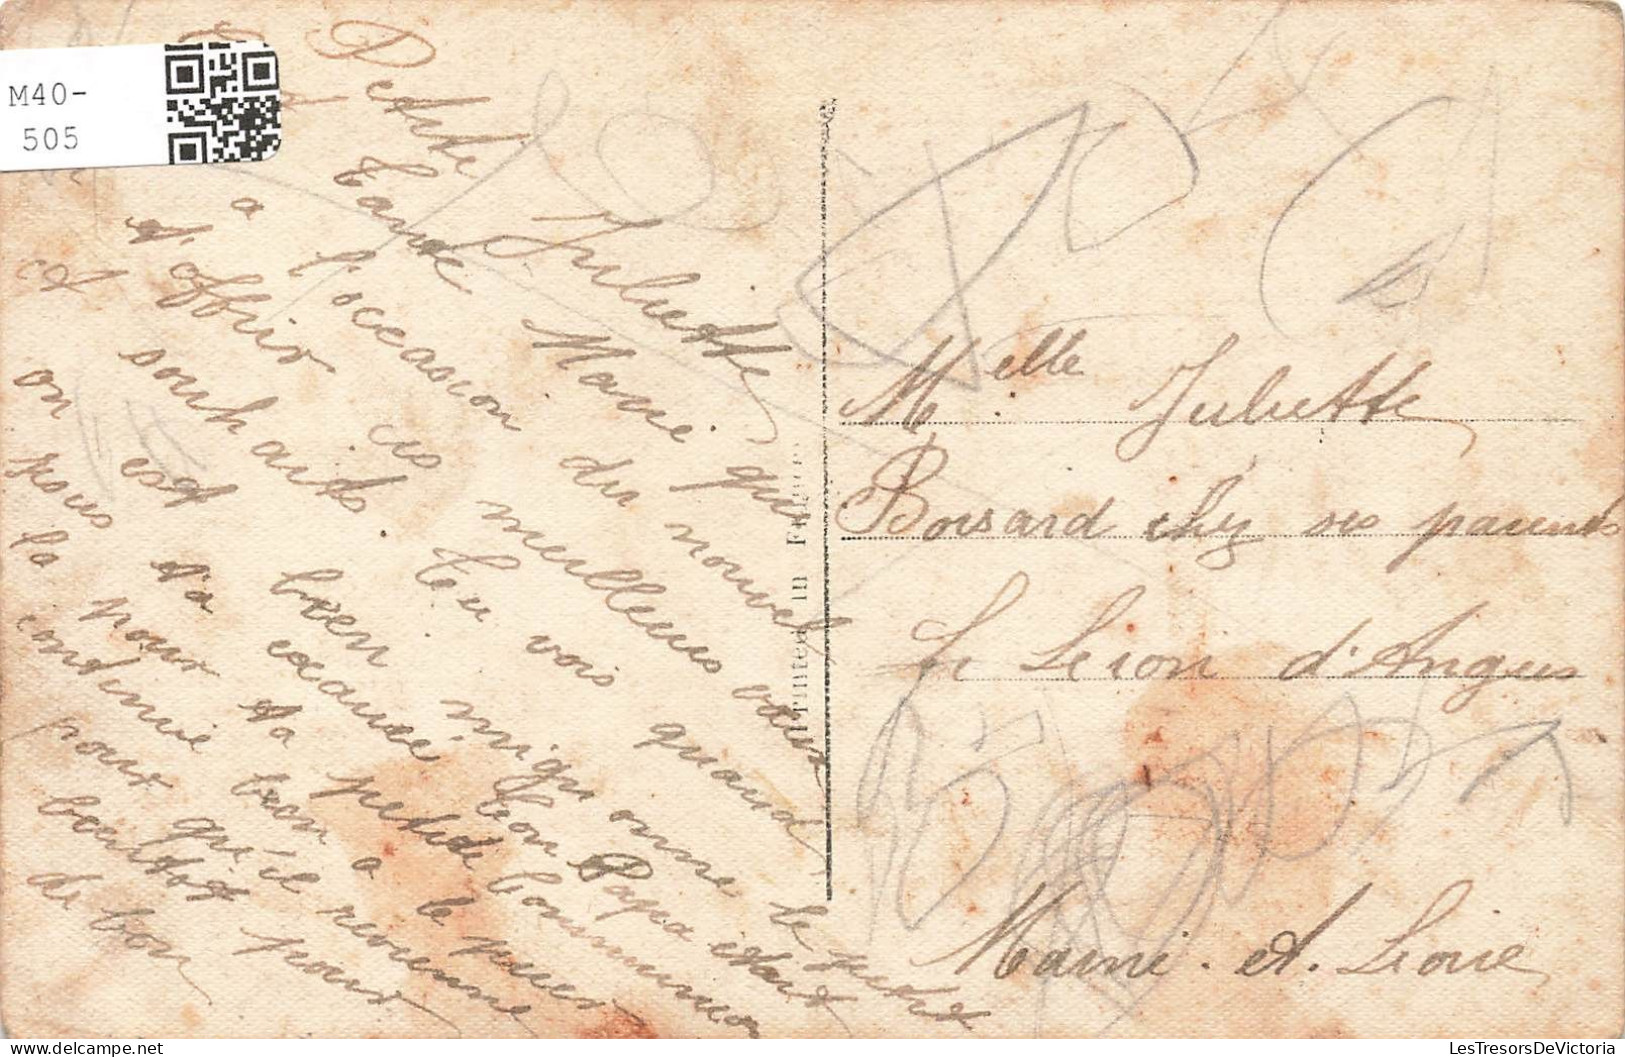 M40-
505
Petite Juliette
Tante Marie qui
a l'occasion du nouvel
d'offrir ces meilleurs vœux
et souhaits. Tu vois quand
on est bien mignonne le petite
pous t'a exaucé ton Papa était
la pour ta petite Communion
continue bien a le prier
pour qu'il revienne
bientot pour
de bon
Printed in France
Melle Juliette
Boisard chez ses parents
Le Lion d'Angers
Maine-et-Loire
LesTresorsDeVictoria.com